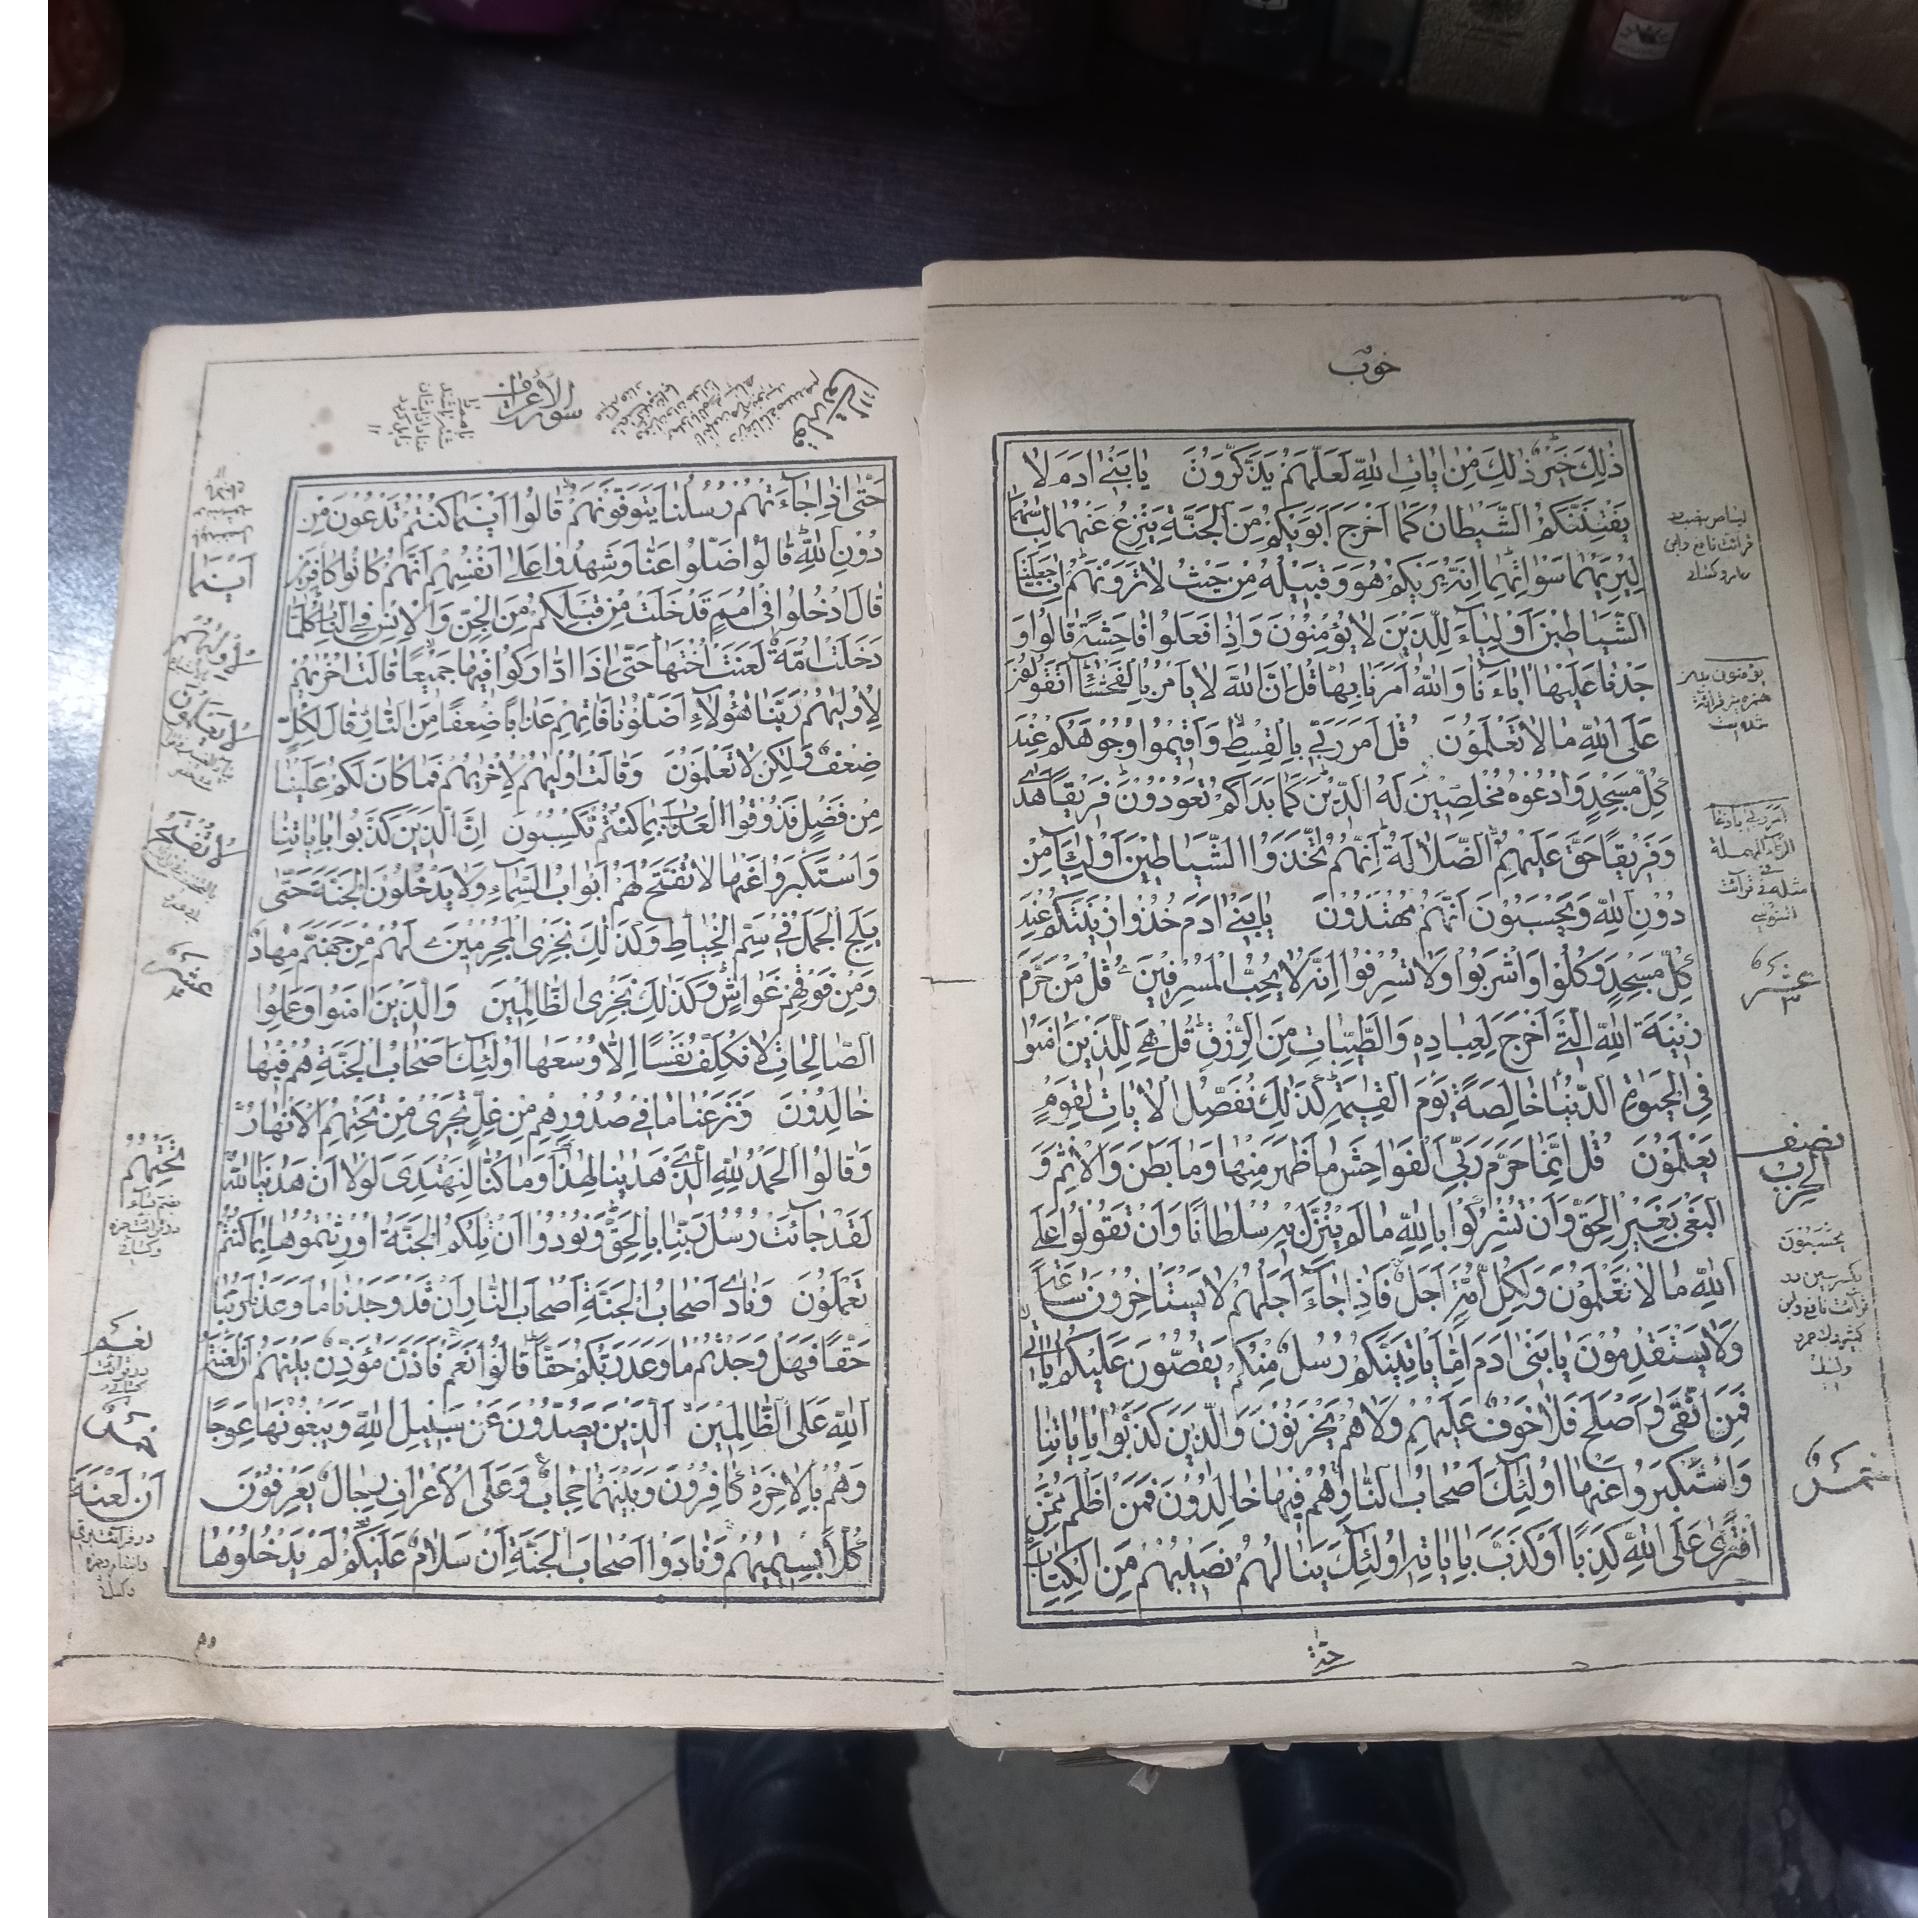 خوب
ذٰلِكَ خَيْرٌ ذٰلِكَ مِنْ اٰيٰاتِ اللّٰهِ لَعَلَّهُمْ يَذَّكَّرُونَ يٰا بَنٖي اٰدَمَ لٰا
يَفْتِنَنَّكُمُ الشَّيْطٰانُ كَمٰا اَخْرَجَ اَبَوَيْكُمْ مِنَ الْجَنَّةِ يَنْزِعُ عَنْهُمٰا لِبٰاسَهُمٰا
لِيُرِيَهُمٰا سَوْاٰتِهِمٰا اِنَّهُ يَرٰيكُمْ هُوَ وَقَبٖيلُهُ مِنْ حَيْثُ لٰا تَرَوْنَهُمْ اِنّٰا جَعَلْنَا
الشَّيٰاطٖينَ اَوْلِيٰاءَ لِلَّذٖينَ لٰا يُؤْمِنُونَ وَاِذٰا فَعَلُوا فٰاحِشَةً قٰالُوا وَ
جَدْنٰا عَلَيْهٰا اٰبٰاءَنٰا وَاللّٰهُ اَمَرَنٰا بِهٰا قُلْ اِنَّ اللّٰهَ لٰا يَاْمُرُ بِالْفَحْشٰاءِ اَتَقُولُونَ
عَلَى اللّٰهِ مٰا لٰا تَعْلَمُونَ قُلْ اَمَرَ رَبّٖي بِالْقِسْطِ وَاَقٖيمُوا وُجُوهَكُمْ عِنْدَ
كُلِّ مَسْجِدٍ وَادْعُوهُ مُخْلِصٖينَ لَهُ الدّٖينَ كَمٰا بَدَاَكُمْ تَعُودُونَ فَرٖيقًا هَدٰى
وَفَرٖيقًا حَقَّ عَلَيْهِمُ الضَّلٰالَةُ اِنَّهُمُ اتَّخَذَوُا الشَّيٰاطٖينَ اَوْلِيٰاءَ مِنْ
دُونِ اللّٰهِ وَيَحْسَبُونَ اَنَّهُمْ مُهْتَدُونَ يٰا بَنٖي اٰدَمَ خُذُوا زٖينَتَكُمْ عِنْدَ
كُلِّ مَسْجِدٍ وَكُلُوا وَاشْرَبُوا وَلٰا تُسْرِفُوا اِنَّهُ لٰا يُحِبُّ الْمُسْرِفٖينَ قُلْ مَنْ حَرَّمَ
زٖينَةَ اللّٰهِ الَّتٖي اَخْرَجَ لِعِبٰادِهِ وَالطَّيِّبٰاتِ مِنَ الرِّزْقِ قُلْ هِيَ لِلَّذٖينَ اٰمَنُوا
فِي الْحَيٰوةِ الدُّنْيٰا خٰالِصَةً يَوْمَ الْقِيٰمَةِ كَذٰلِكَ نُفَصِّلُ الْاٰيٰاتِ لِقَوْمٍ
يَعْلَمُونَ قُلْ اِنَّمٰا حَرَّمَ رَبِّيَ الْفَوٰاحِشَ مٰا ظَهَرَ مِنْهٰا وَمٰا بَطَنَ وَالْاِثْمَ وَ
الْبَغْيَ بِغَيْرِ الْحَقِّ وَاَنْ تُشْرِكُوا بِاللّٰهِ مٰا لَمْ يُنَزِّلْ بِهِ سُلْطٰانًا وَاَنْ تَقُولُوا عَلَى
اللّٰهِ مٰا لٰا تَعْلَمُونَ وَلِكُلِّ اُمَّةٍ اَجَلٌ فَاِذٰا جٰاءَ اَجَلُهُمْ لٰا يَسْتَاْخِرُونَ سٰاعَةً
وَلٰا يَسْتَقْدِمُونَ يٰا بَنٖي اٰدَمَ اِمّٰا يَاْتِيَنَّكُمْ رُسُلٌ مِنْكُمْ يَقُصُّونَ عَلَيْكُمْ اٰيٰاتٖي
فَمَنِ اتَّقٰى وَاَصْلَحَ فَلٰا خَوْفٌ عَلَيْهِمْ وَلٰا هُمْ يَحْزَنُونَ وَالَّذٖينَ كَذَّبُوا بِاٰيٰاتِنٰا
وَاسْتَكْبَرُوا عَنْهٰا اُولٰئِكَ اَصْحٰابُ النّٰارِ هُمْ فٖيهٰا خٰالِدُونَ فَمَنْ اَظْلَمُ مِمَّنِ
افْتَرٰى عَلَى اللّٰهِ كَذِبًا اَوْ كَذَّبَ بِاٰيٰاتِهِ اُولٰئِكَ يَنٰالُهُمْ نَصٖيبُهُمْ مِنَ الْكِتٰابِ
عشر
نصف
الحزب
يَحْسَبُونَ
حتى
سورة الأعراف
حَتّٰى اِذٰا جٰاءَتْهُمْ رُسُلُنٰا يَتَوَفَّوْنَهُمْ قٰالُوا اَيْنَمٰا كُنْتُمْ تَدْعُونَ مِنْ
دُونِ اللّٰهِ قٰالُوا ضَلُّوا عَنّٰا وَشَهِدُوا عَلٰى اَنْفُسِهِمْ اَنَّهُمْ كٰانُوا كٰافِرٖينَ
قٰالَ ادْخُلُوا فٖي اُمَمٍ قَدْ خَلَتْ مِنْ قَبْلِكُمْ مِنَ الْجِنِّ وَالْاِنْسِ فِي النّٰارِ كُلَّمٰا
دَخَلَتْ اُمَّةٌ لَعَنَتْ اُخْتَهٰا حَتّٰى اِذَا ادّٰارَكُوا فٖيهٰا جَمٖيعًا قٰالَتْ اُخْرٰيهُمْ
لِاُولٰيهُمْ رَبَّنٰا هٰؤُلٰاءِ اَضَلُّونٰا فَاٰتِهِمْ عَذٰابًا ضِعْفًا مِنَ النّٰارِ قٰالَ لِكُلٍّ
ضِعْفٌ وَلٰكِنْ لٰا تَعْلَمُونَ وَقٰالَتْ اُولٰيهُمْ لِاُخْرٰيهُمْ فَمٰا كٰانَ لَكُمْ عَلَيْنٰا
مِنْ فَضْلٍ فَذُوقُوا الْعَذٰابَ بِمٰا كُنْتُمْ تَكْسِبُونَ اِنَّ الَّذٖينَ كَذَّبُوا بِاٰيٰاتِنٰا
وَاسْتَكْبَرُوا عَنْهٰا لٰا تُفَتَّحُ لَهُمْ اَبْوٰابُ السَّمٰاءِ وَلٰا يَدْخُلُونَ الْجَنَّةَ حَتّٰى
يَلِجَ الْجَمَلُ فٖي سَمِّ الْخِيٰاطِ وَكَذٰلِكَ نَجْزِي الْمُجْرِمٖينَ لَهُمْ مِنْ جَهَنَّمَ مِهٰادٌ
وَمِنْ فَوْقِهِمْ غَوٰاشٍ وَكَذٰلِكَ نَجْزِي الظّٰالِمٖينَ وَالَّذٖينَ اٰمَنُوا وَعَمِلُوا
الصّٰالِحٰاتِ لٰا نُكَلِّفُ نَفْسًا اِلّٰا وُسْعَهٰا اُولٰئِكَ اَصْحٰابُ الْجَنَّةِ هُمْ فٖيهٰا
خٰالِدُونَ وَنَزَعْنٰا مٰا فٖي صُدُورِهِمْ مِنْ غِلٍّ تَجْرٖي مِنْ تَحْتِهِمُ الْاَنْهٰارُ
وَقٰالُوا الْحَمْدُ لِلّٰهِ الَّذٖي هَدٰينٰا لِهٰذٰا وَمٰا كُنّٰا لِنَهْتَدِيَ لَوْلٰا اَنْ هَدٰينَا اللّٰهُ
لَقَدْ جٰائَتْ رُسُلُ رَبِّنٰا بِالْحَقِّ وَنُودُوا اَنْ تِلْكُمُ الْجَنَّةُ اُورِثْتُمُوهٰا بِمٰا كُنْتُمْ
تَعْمَلُونَ وَنٰادٰى اَصْحٰابُ الْجَنَّةِ اَصْحٰابَ النّٰارِ اَنْ قَدْ وَجَدْنٰا مٰا وَعَدَنٰا رَبُّنٰا
حَقًّا فَهَلْ وَجَدْتُمْ مٰا وَعَدَ رَبُّكُمْ حَقًّا قٰالُوا نَعَمْ فَاَذَّنَ مُؤَذِّنٌ بَيْنَهُمْ اَنْ لَعْنَةُ
اللّٰهِ عَلَى الظّٰالِمٖينَ الَّذٖينَ يَصُدُّونَ عَنْ سَبٖيلِ اللّٰهِ وَيَبْغُونَهٰا عِوَجًا
وَهُمْ بِالْاٰخِرَةِ كٰافِرُونَ وَبَيْنَهُمٰا حِجٰابٌ وَعَلَى الْاَعْرٰافِ رِجٰالٌ يَعْرِفُونَ
كُلًّا بِسٖيمٰيهُمْ وَنٰادَوْا اَصْحٰابَ الْجَنَّةِ اَنْ سَلٰامٌ عَلَيْكُمْ لَمْ يَدْخُلُوهٰا
اَيْنَمٰا
لٰا تُفَتَّحُ
عشر
تَحْتِهِمُ
نعم
اَنْ لَعْنَةَ